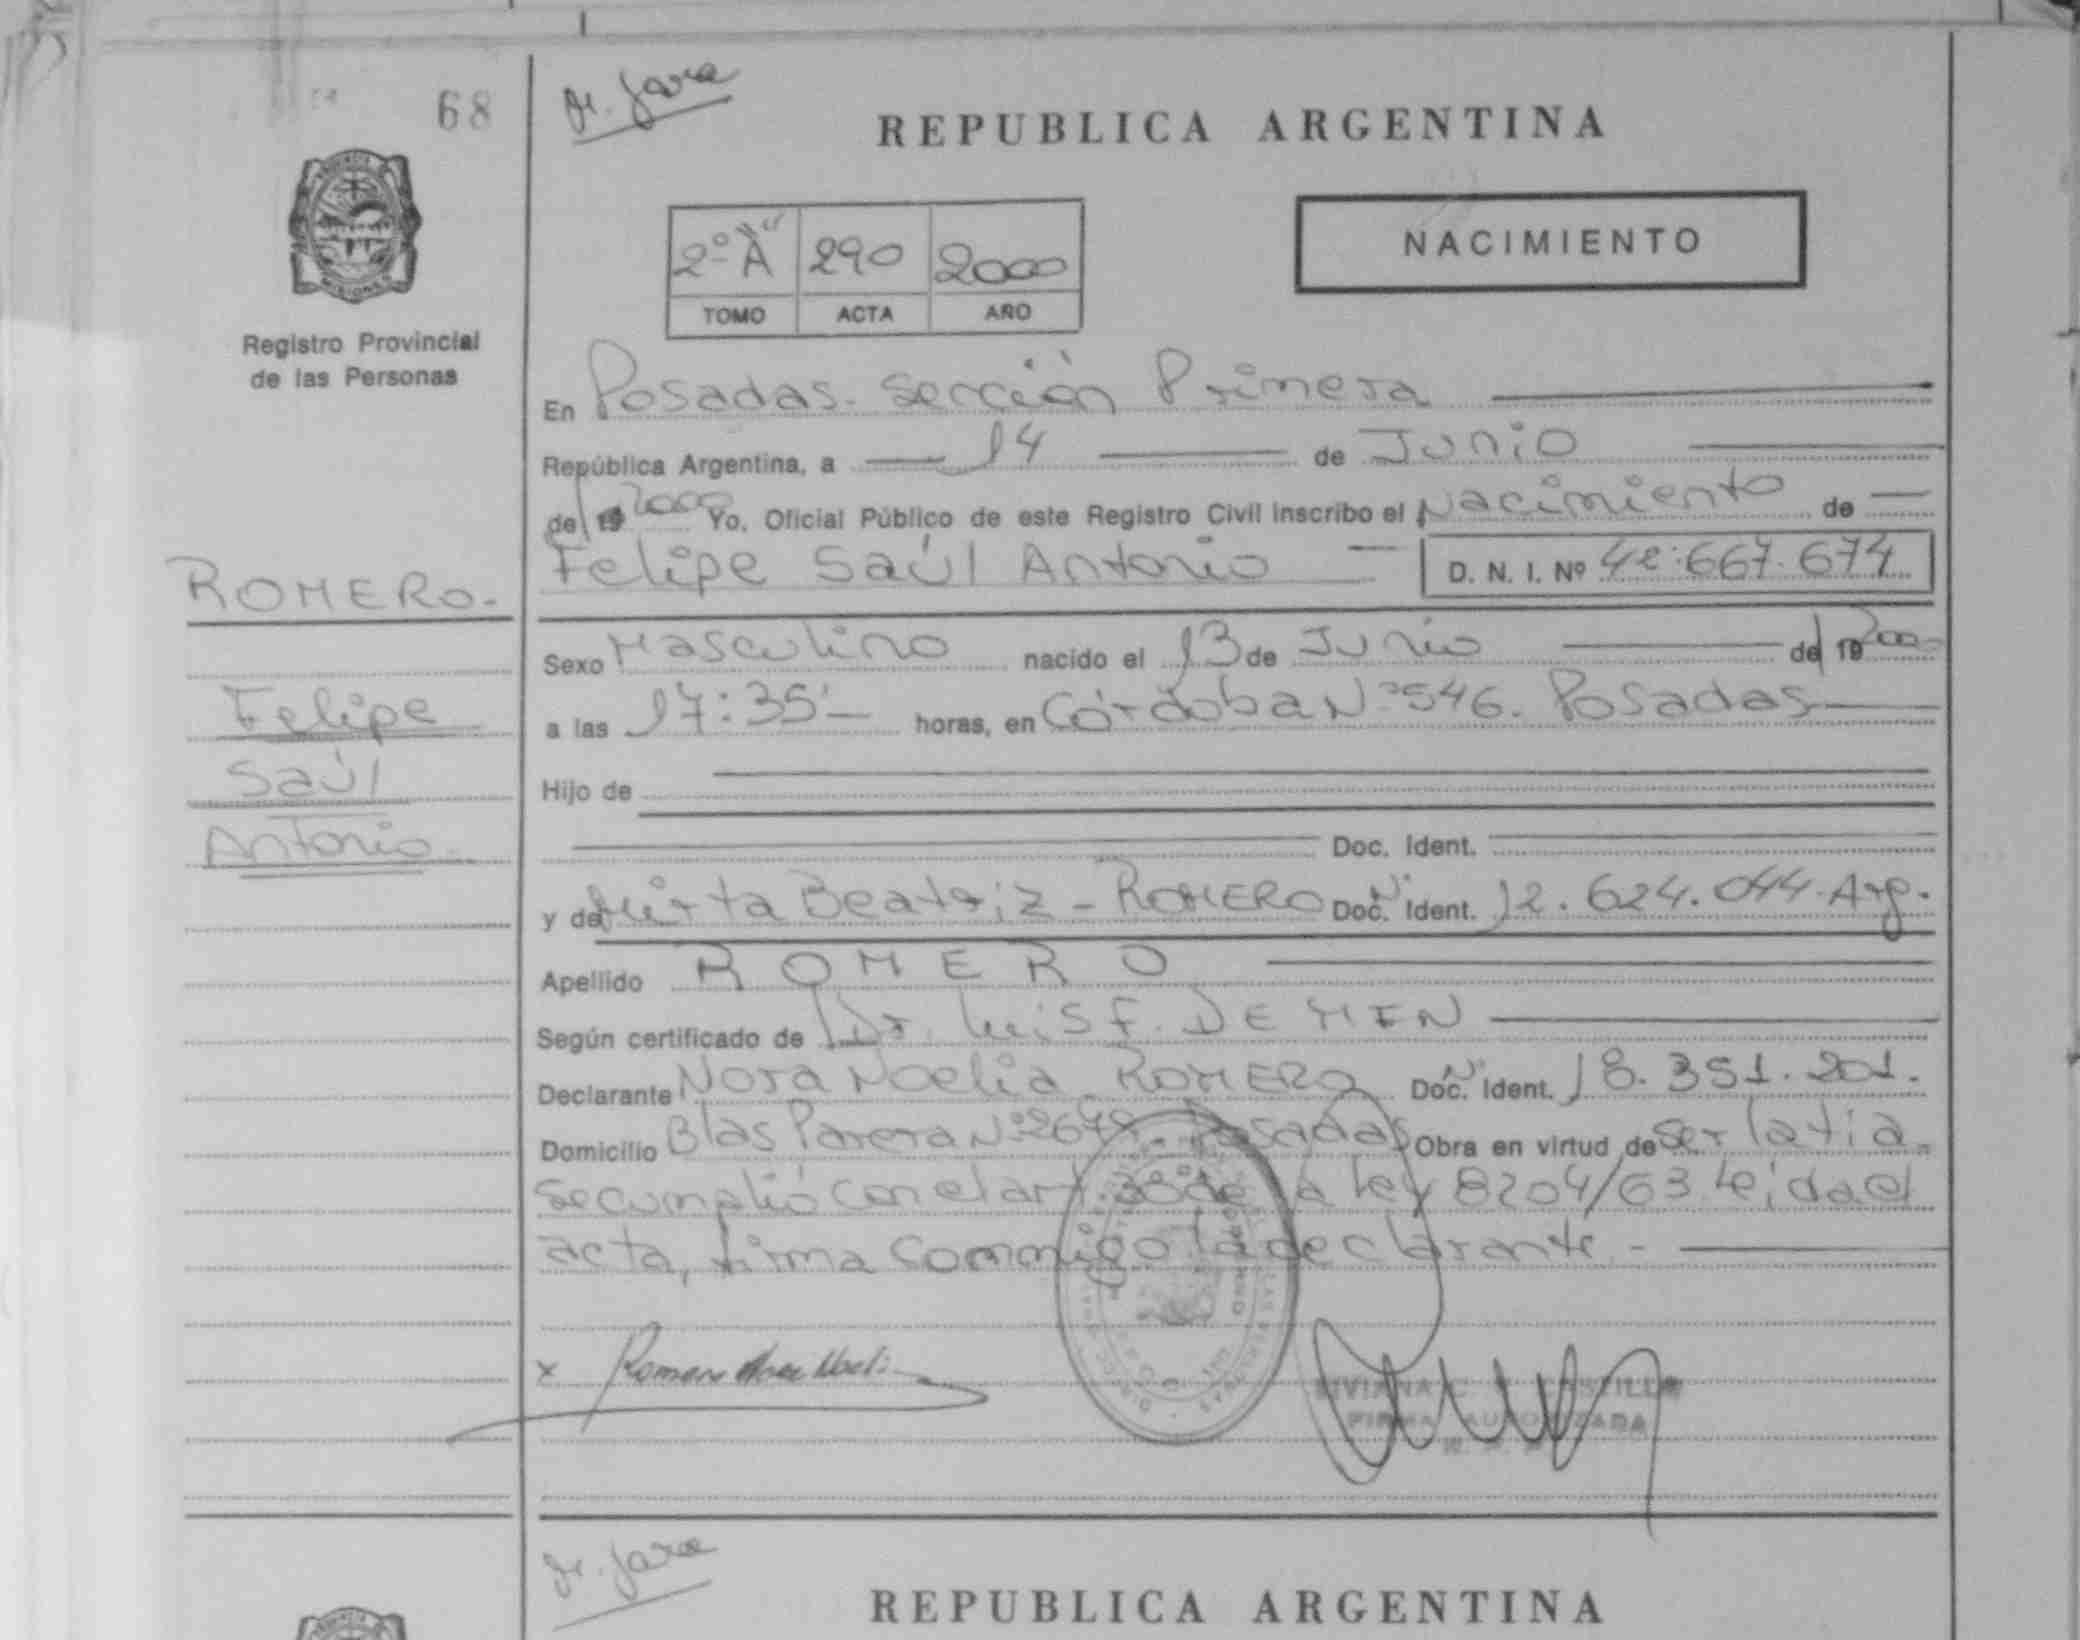 68
Jr. Jara
REPUBLICA ARGENTINA
2º "A" 290 2000
TOMO ACTA AÑO
NACIMIENTO
MISIONES
Registro Provincial
de las Personas
En Posadas. Sección Primera
República Argentina, a 14 de Junio
de 19 2000 Yo, Oficial Público de este Registro Civil inscribo el Nacimiento de
Felipe Saúl Antonio D. N. I. Nº 42.667.674
ROMERO.
Felipe
Saúl
Antonio.
Sexo Masculino nacido el 13 de Junio de 19 2000
a las 17:35 horas, en Córdoba Nº 546. Posadas
Hijo de
Doc. Ident.
y de Mirta Beatriz - ROMERO Doc. Ident. Nº 12.624.044. Arg.
Apellido ROMERO
Según certificado de Dr. Luis F. DEMEN
Declarante Nora Noelia ROMERO Doc. Ident. Nº 18.351.201.
Domicilio Blas Parera Nº Posadas Obra en virtud de ser la tía.
Se cumplió con el art. 30º de la ley 8204/63 leída el
acta, firma conmigo la declarante.-
x Romero Nora Noeli
FIRMA AUTORIZADA
Jr. Jara
REPUBLICA ARGENTINA